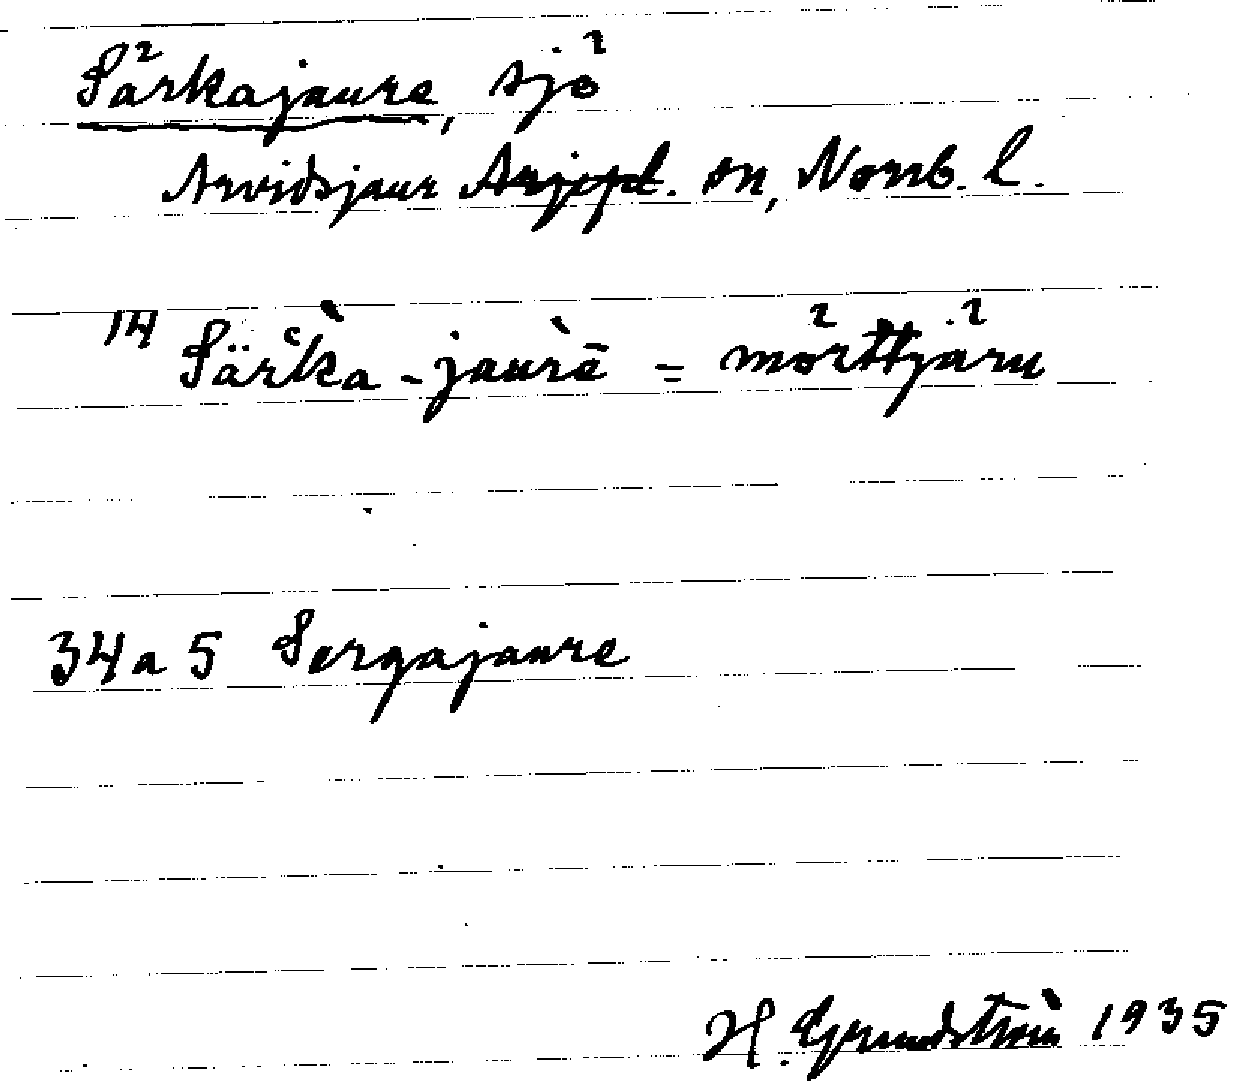 Särkajaure, sjö
Arvidsjaur Arjepl. sn, Norrb. l.
14 Särˊka - jaurē = mörttjärn
34 a 5 Sergajaure
H. Grundström 1935